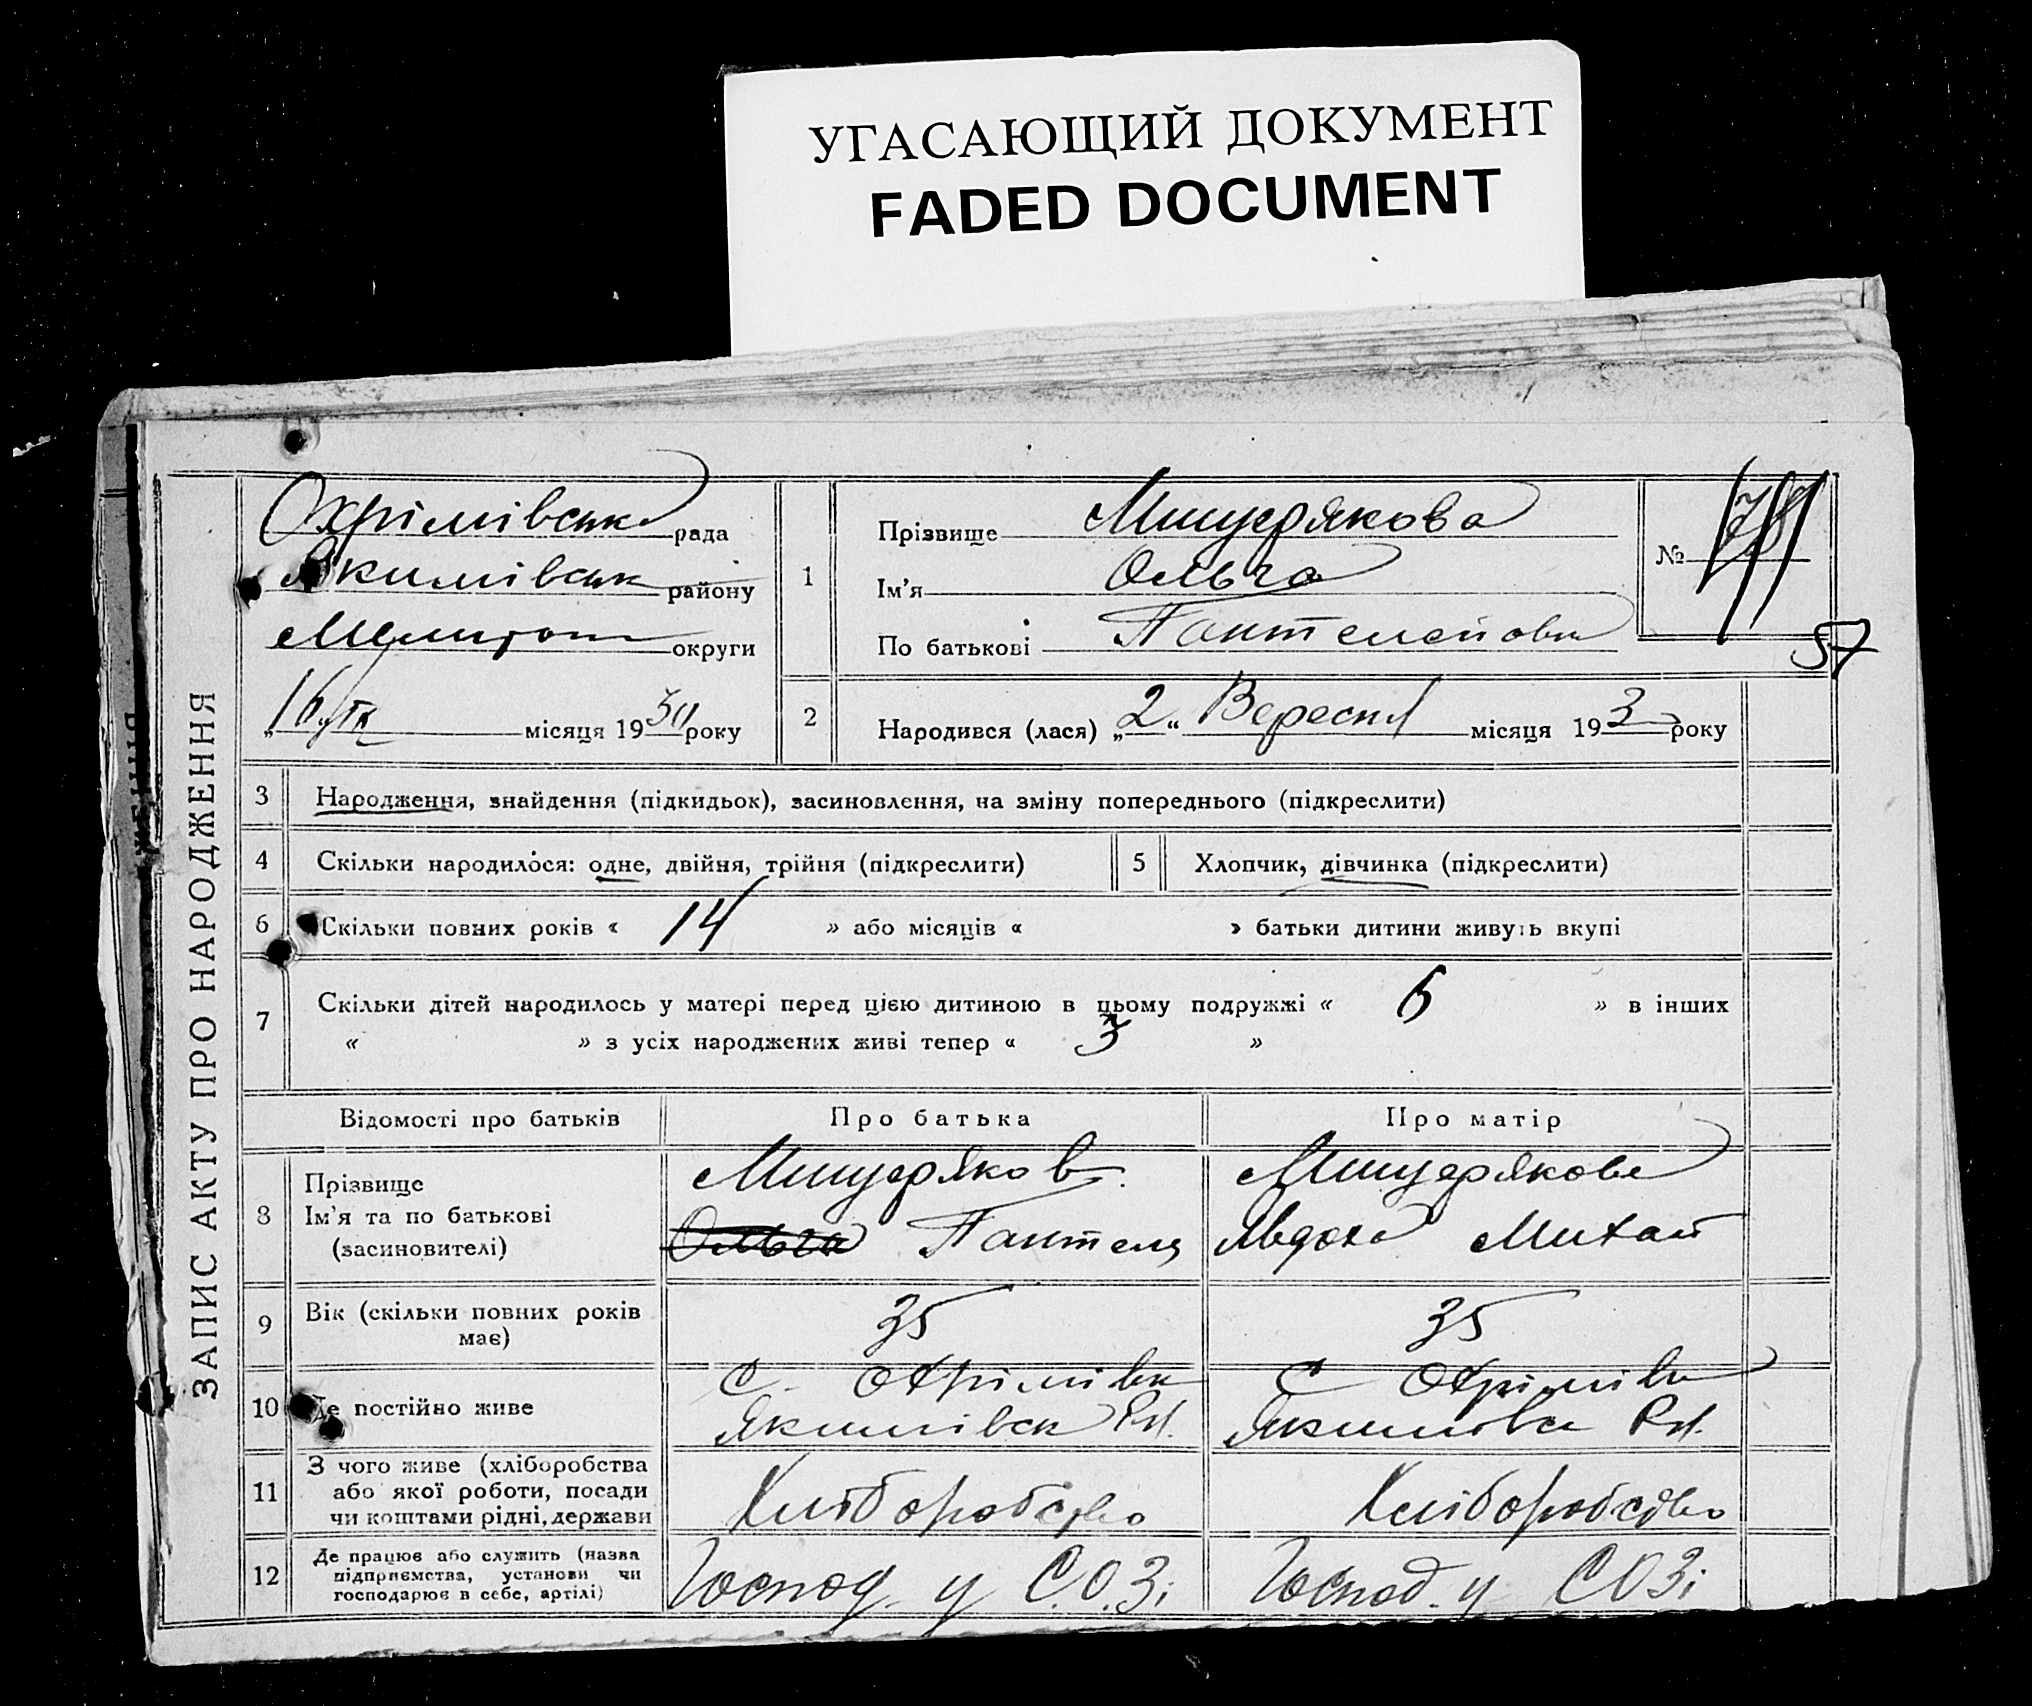 УГАСАЮЩИЙ ДОКУМЕНТ
FADED DOCUMENT
ЗАПИС АКТУ ПРО НАРОДЖЕННЯ
Охрімівська рада
Якимівськ району
округи
"16 місяця 1930 року
1
Прізвище Мищерякова
Ім'я Ольга
По батькові Пантелейовна
№ 78
57
2 Народився (лася) „2“ Вересня місяця 193 року
3 Народження, знайдення (підкидьок), засиновлення, на зміну попереднього (підкреслити)
4 Скільки народилося: одне, двійня, трійня (підкреслити) 5 Хлопчик, дівчинка (підкреслити)
6 Скільки повних років « 14 » або місяців « » батьки дитини живуть вкупі
7 Скільки дітей народилось у матері перед цією дитиною в цьому подружжі « 6 » в інших
« » з усіх народжених живі тепер « 3 »
Відомості про батьків Про батька Про матір
8 Прізвище
Ім'я та по батькові
(засиновителі)
Мищеряков
Ольга Пантелей
Мищерякова
Явдоха Михай
9 Вік (скільки повних років
має)
35 35
10 Де постійно живе
с. Охрімівка
Якимівск Рн.
с Охрімівка
Якимівск Рн.
11 З чого живе (хліборобства
або якої роботи, посади
чи коштами рідні, держави
Хліборобство Хліборобство
12 Де працює або служить (назва
підприємства, установи чи
господарює в себе, артілі)
Господ. у С.О.Зі Господ. у СОЗі